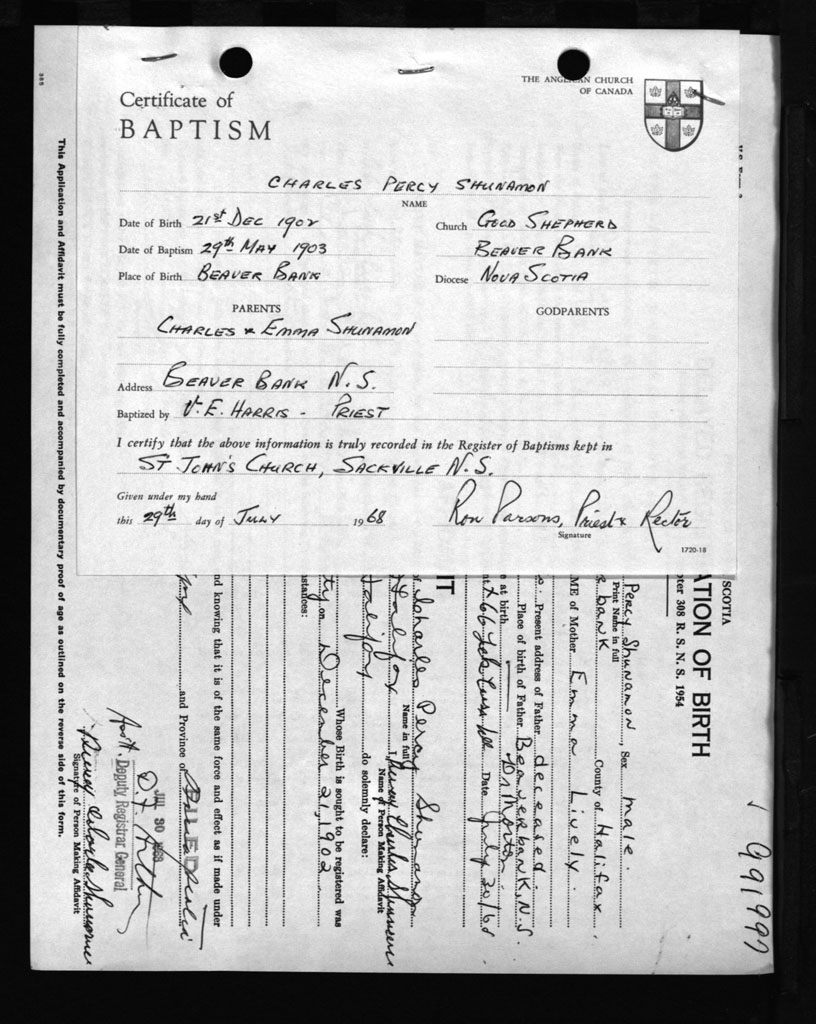 THE ANGLICAN CHURCH
OF CANADA
Certificate of
BAPTISM
CHARLES PERCY SHUNAMON
NAME
Date of Birth 21st DEC 1902
Date of Baptism 29th MAY 1903
Place of Birth BEAVER BANK
Church GOOD SHEPHERD
BEAVER BANK
Diocese NOVA SCOTIA
PARENTS
CHARLES & EMMA SHUNAMON
GODPARENTS
Address BEAVER BANK N.S.
Baptized by V.E. HARRIS - PRIEST
I certify that the above information is truly recorded in the Register of Baptisms kept in
ST JOHN'S CHURCH, SACKVILLE N.S.
Given under my hand
this 29th day of JULY 1968
Ron Parsons, Priest & Rector
Signature
1720-18
SCOTIA
ter 308 R. S. N. S. 1954
ATION OF BIRTH
Percy Shunamon, Sex male.
Print Name in full
bank County of Halifax
ME of Mother Emma Lively.
Present address of Father deceased.
Place of birth of Father Beaverbank, N.S.
e at birth
Date July 30/68
IT
Charles Percy Shunamon
Name in full
Halifax I,
Name of Person Making Affidavit
Halifax do solemnly declare:
Whose Birth is sought to be registered was
ty on December 21, 1902
stances:
nd knowing that it is of the same force and effect as if made under
and Province of
FILED
JUL 30 1968
Asst. Deputy Registrar General
Signature of Person Making Affidavit
This Application and Affidavit must be fully completed and accompanied by documentary proof of age as outlined on the reverse side of this form.
991997